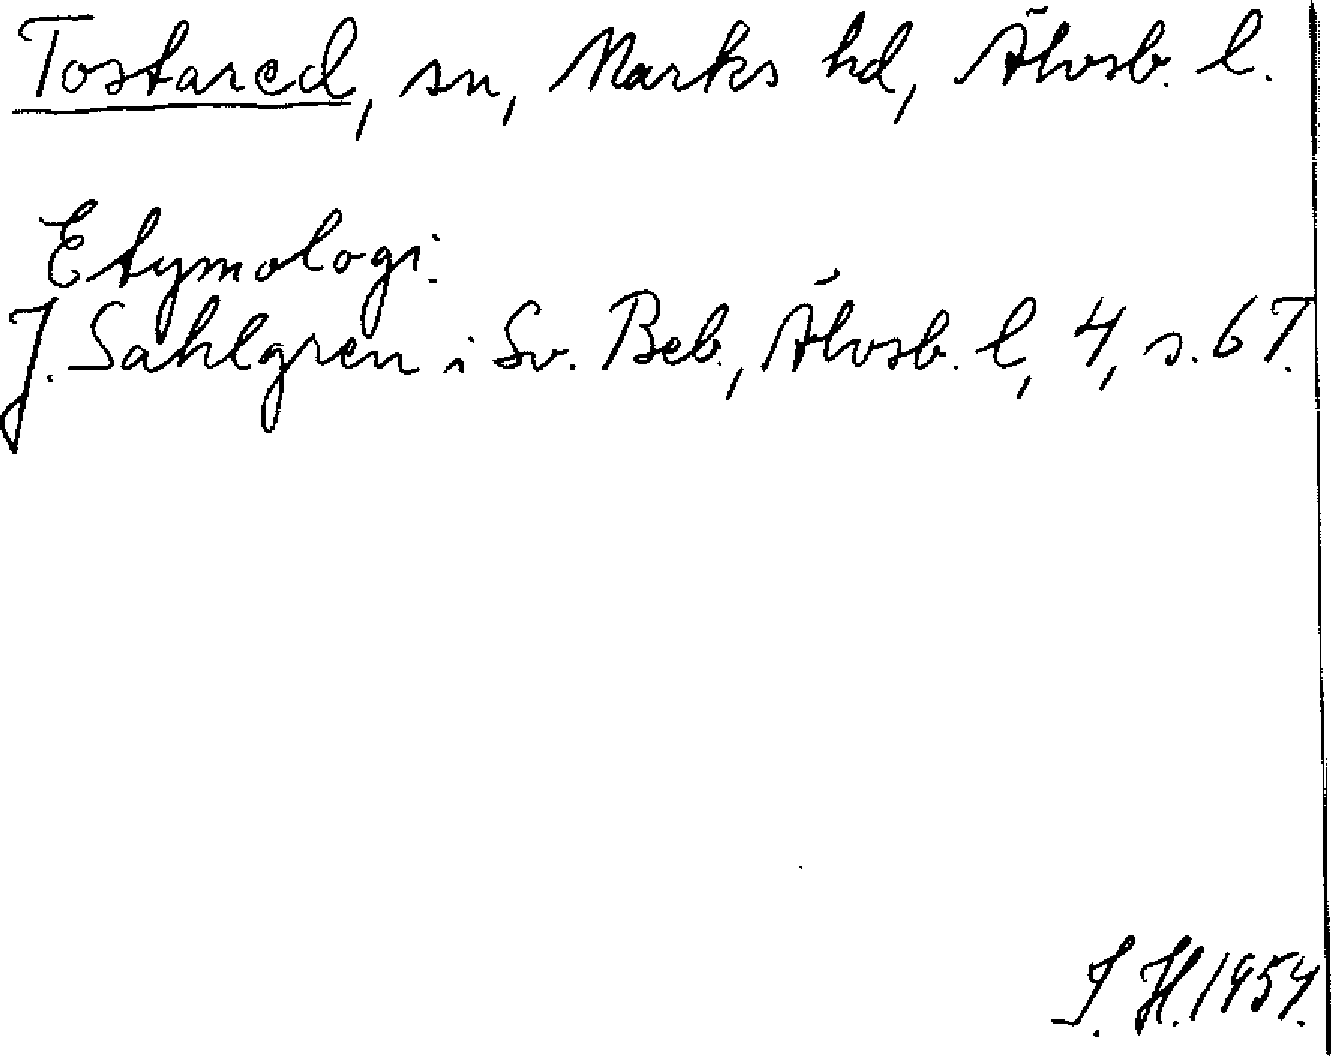 Tostared, sn, Marks hd, Älvsb. l.
Etymologi.
J. Sahlgren i Sv. Beb., Älvsb. l, 4, s. 67.
S. H. 1954.